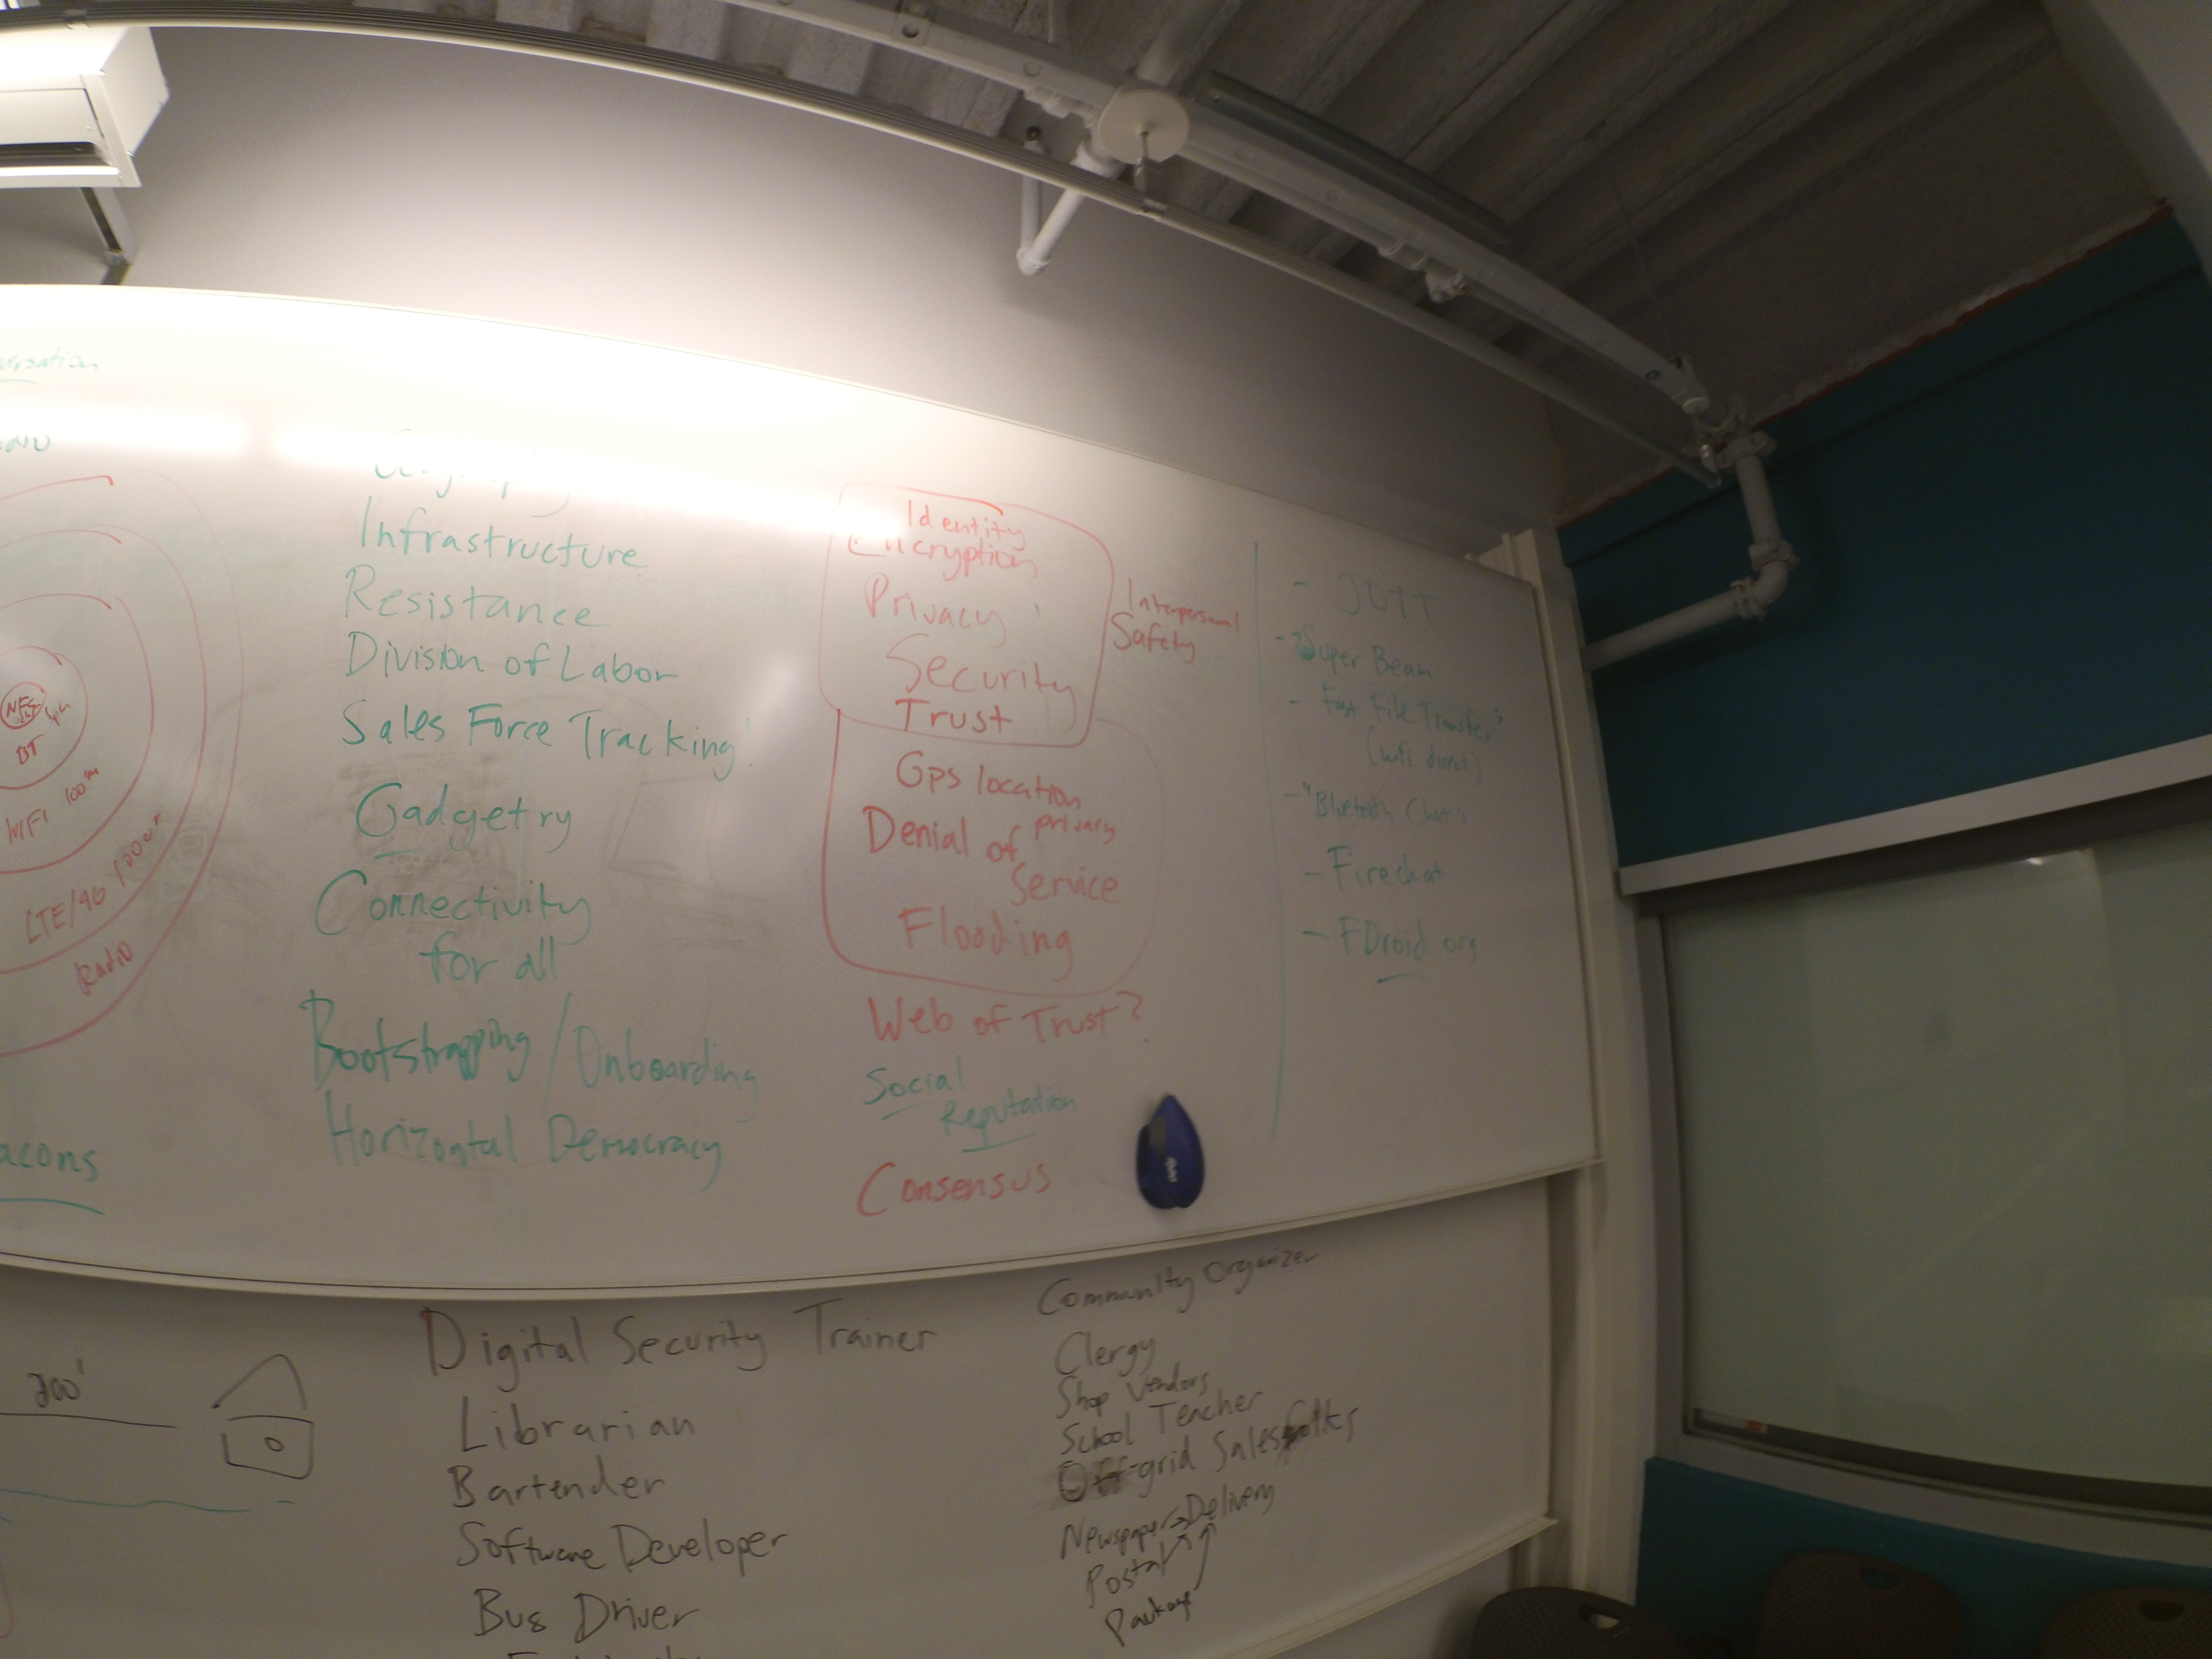 NFC
BT
WIFI 100m
LTE/4G
Radio
Infrastructure
Resistance
Division of Labor
Sales Force Tracking!
Gadgetry
Connectivity
for all
Bootstrapping / Onboarding
Horizontal Democracy
Identity
Encryption
Privacy
Security
Trust
Interpersonal
Safety
GPS location
privacy
Denial of
Service
Flooding
Web of Trust?
Social
Reputation
Consensus
- Super Beam
- Fast File Transfer"
(wifi direct)
- "Bluetooth Chat"
- Firechat
- FDroid.org
200'
Digital Security Trainer
Librarian
Bartender
Software Developer
Bus Driver
Community Organizer
Clergy
Shop Vendors
School Teacher
Off-grid Salesfolks
Newspaper → Delivery
Postal
Package